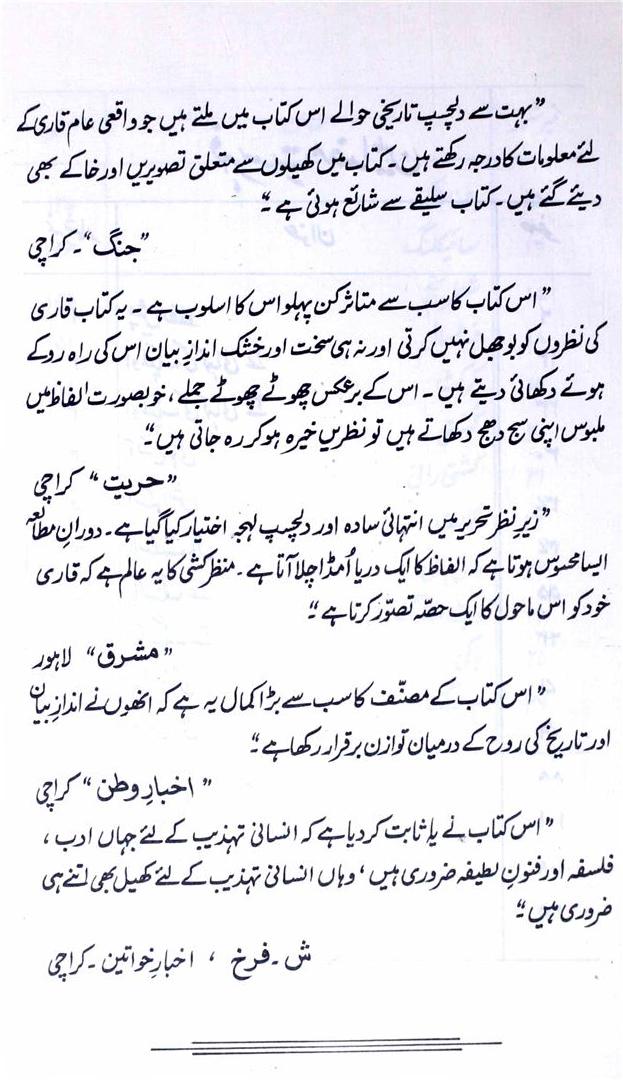 ”بہت سے دلچسپ تاریخی حوالے اس کتاب میں ملتے ہیں جو واقعی عام قاری کے
لئے معلومات کا درجہ رکھتے ہیں ۔ کتاب میں کھیلوں سے متعلق تصویریں اور خاکے بھی
دیئے گئے ہیں ۔ کتاب سلیقے سے شائع ہوئی ہے “
”جنگ“ ۔ کراچی
”اس کتاب کا سب سے متاثر کن پہلو اس کا اسلوب ہے ۔ یہ کتاب قاری
کی نظروں کو بوجھل نہیں کرتی اور نہ ہی سخت اور خشک اندازِ بیان اس کی راہ روکے
ہوئے دکھائی دیتے ہیں ۔ اس کے برعکس چھوٹے چھوٹے جملے ، خوبصورت الفاظ میں
ملبوس اپنی سج دھج دکھاتے ہیں تو نظریں خیرہ ہو کر رہ جاتی ہیں“
”حریت“ کراچی
”زیرِ نظر تحریر میں انتہائی سادہ اور دلچسپ لہجہ اختیار کیا گیا ہے ۔ دورانِ مطالعہ
ایسا محسوس ہوتا ہے کہ الفاظ کا ایک دریا اُمڈا چلا آتا ہے ۔ منظر کشی کا یہ عالم ہے کہ قاری
خود کو اس ماحول کا ایک حصّہ تصوّر کرتا ہے “
”مشرق“ لاہور
”اس کتاب کے مصنّف کا سب سے بڑا کمال یہ ہے کہ انھوں نے اندازِ بیان
اور تاریخ کی روح کے درمیان توازن برقرار رکھا ہے “
”اخبارِ وطن“ کراچی
”اس کتاب نے یا ثابت کر دیا ہے کہ انسانی تہذیب کے لئے جہاں ادب ،
فلسفہ اور فنونِ لطیفہ ضروری ہیں ، وہاں انسانی تہذیب کے لئے کھیل بھی اتنے ہی
ضروری ہیں “
ش ۔ فرخ ، اخبارِ خواتین ۔ کراچی